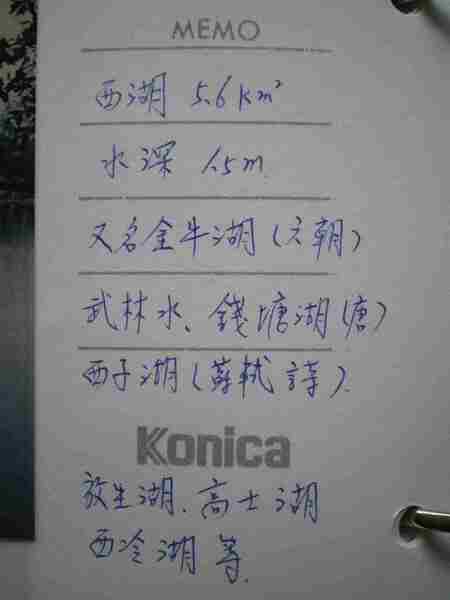 MEMO
西湖 5.6 km²
水深 1.5m
又名金牛湖(六朝)
武林水、錢塘湖(唐)
西子湖(蘇軾詩).
Konica
放生湖、高士湖
西冷湖等.